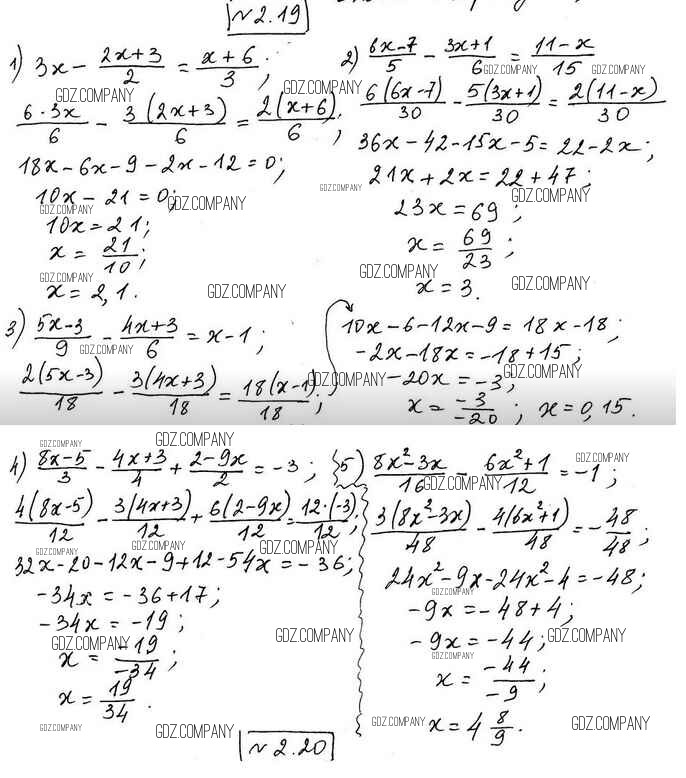 №2.19
1) 3x - (2x+3)/2 = (x+6)/3;
(6·3x)/6 - 3(2x+3)/6 = 2(x+6)/6;
18x-6x-9-2x-12=0;
10x-21=0;
10x=21;
x = 21/10;
x = 2,1.
2) (6x-7)/5 - (3x+1)/6 = (11-x)/15
6(6x-7)/30 - 5(3x+1)/30 = 2(11-x)/30
36x-42-15x-5=22-2x;
21x+2x=22+47;
23x=69;
x = 69/23;
x = 3.
3) (5x-3)/9 - (4x+3)/6 = x-1;
2(5x-3)/18 - 3(4x+3)/18 = 18(x-1)/18;
10x-6-12x-9=18x-18;
-2x-18x=-18+15;
-20x=-3;
x = -3/-20; x=0,15.
4) (8x-5)/3 - (4x+3)/4 + (2-9x)/2 = -3;
4(8x-5)/12 - 3(4x+3)/12 + 6(2-9x)/12 = 12·(-3)/12;
32x-20-12x-9+12-54x=-36;
-34x=-36+17;
-34x=-19;
x = -19/-34;
x = 19/34.
5) (8x²-3x)/16 - (6x²+1)/12 = -1;
3(8x²-3x)/48 - 4(6x²+1)/48 = -48/48;
24x²-9x-24x²-4=-48;
-9x=-48+4;
-9x=-44;
x = -44/-9;
x = 4 8/9.
№2.20
GDZ.COMPANY